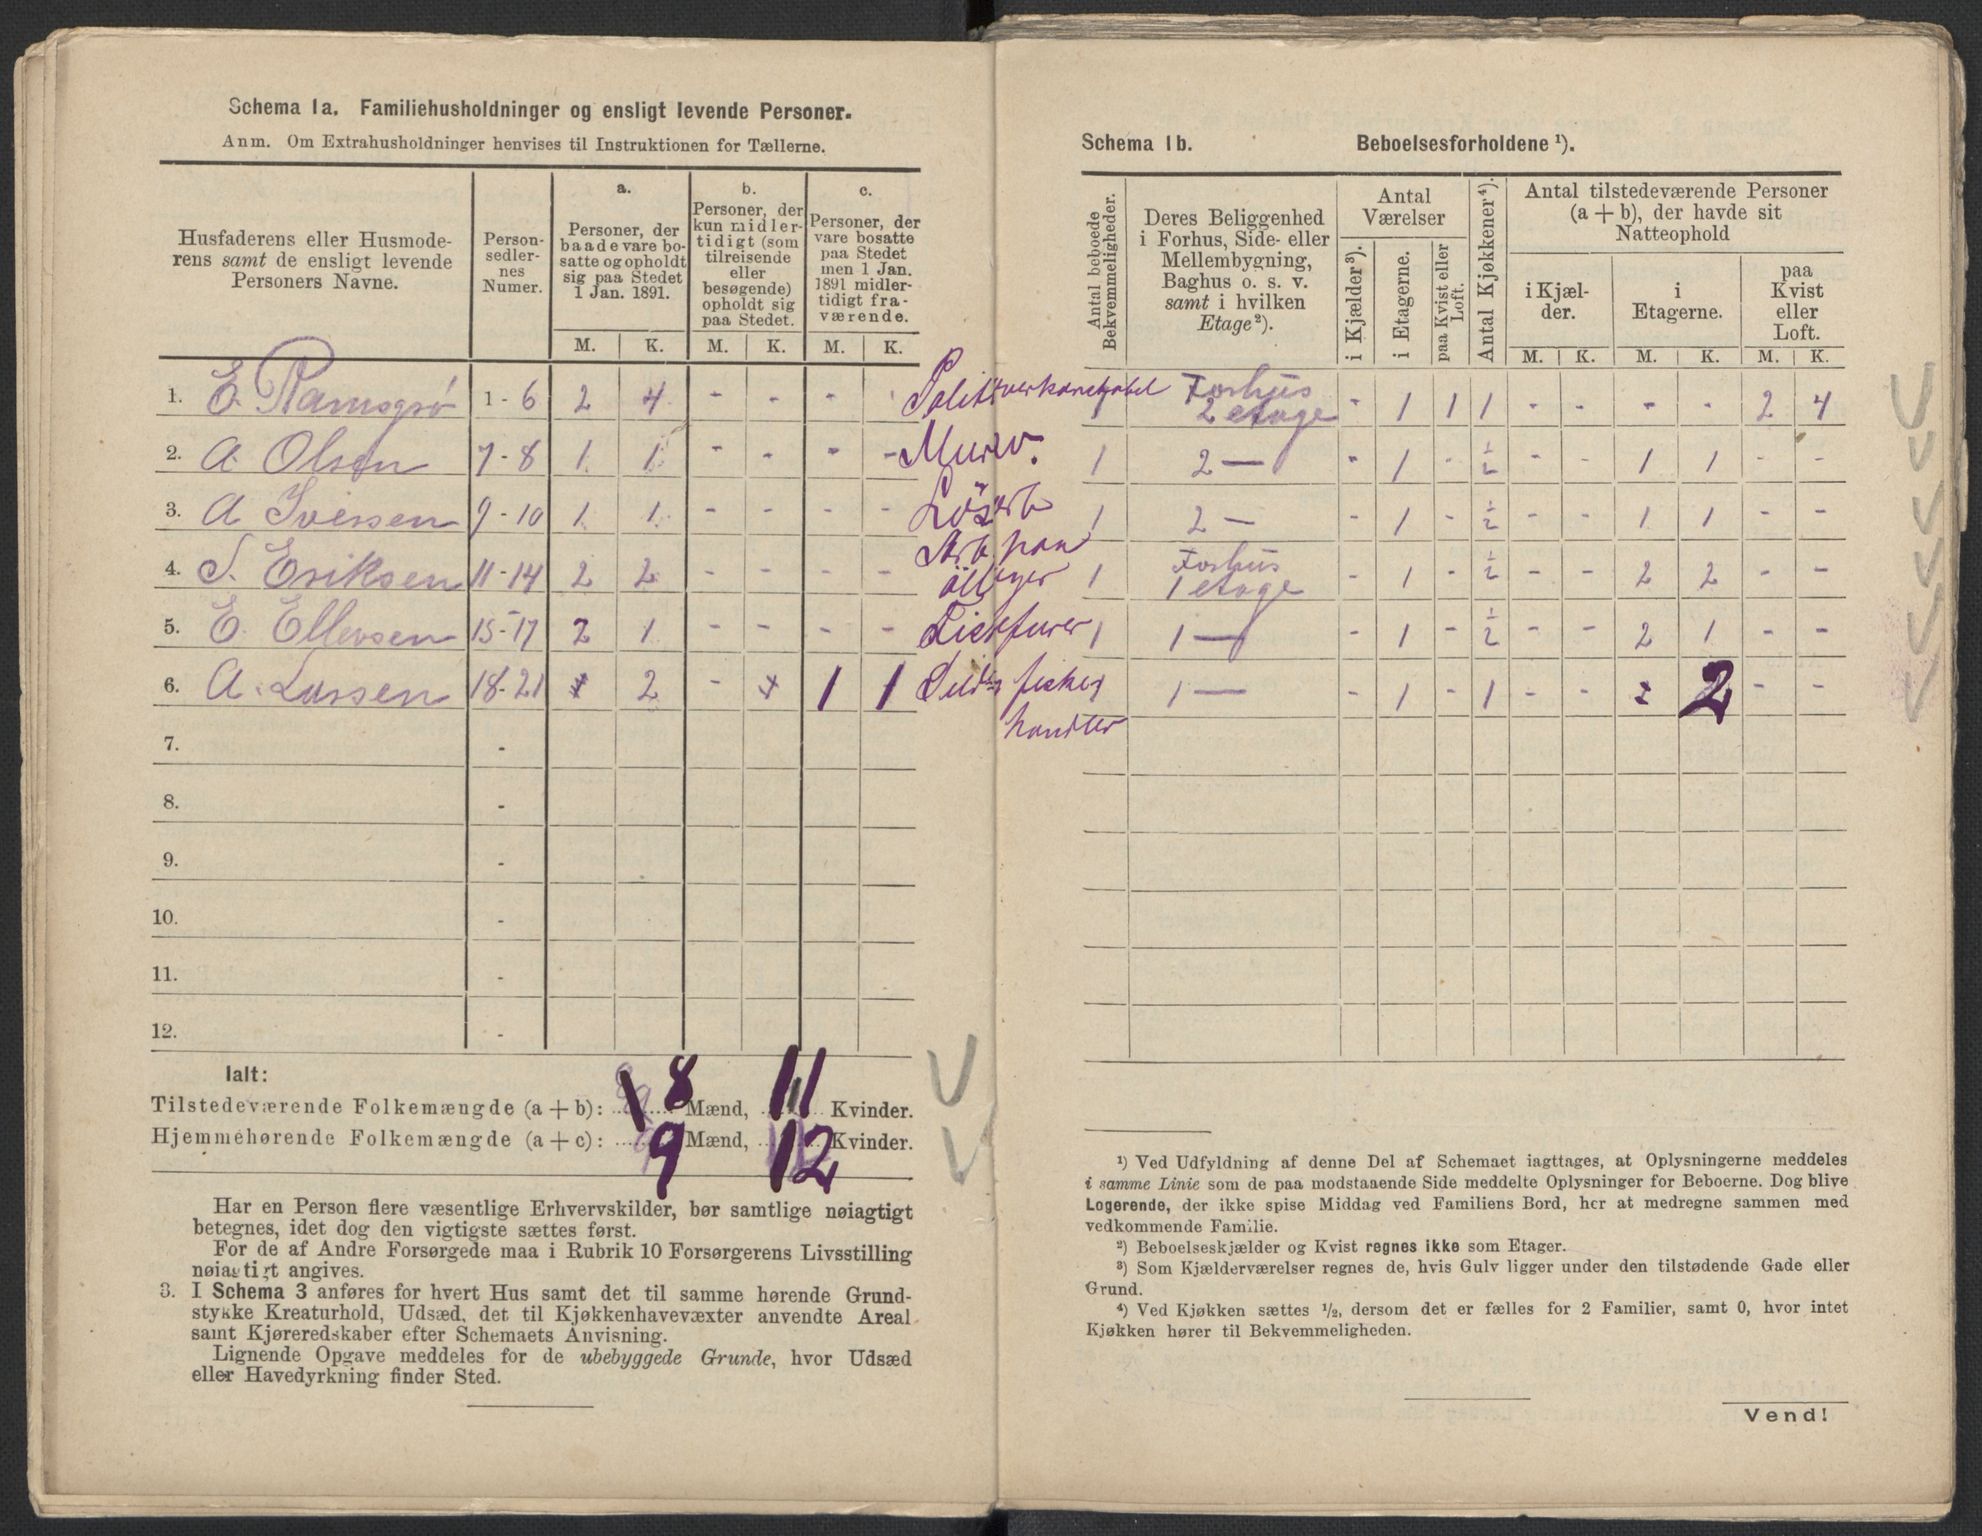 Schema 1a. Familiehusholdninger og ensligt levende Personer.
Anm. Om Extrahusholdninger henvises til Instruktionen for Tællerne.
Husfaderens eller Husmode-
rens samt de ensligt levende
Personers Navne.
Person-
sedler-
nes
Numer.
a.
Personer, der
baade vare bo-
satte og opholdt
sig paa Stedet
1 Jan. 1891.
b.
Personer, der
kun midler-
tidigt (som
tilreisende
eller
besøgende)
opholdt sig
paa Stedet.
c.
Personer, der
vare bosatte
paa Stedet
men 1 Jan.
1891 midler-
tidigt fra-
værende.
M. K. M. K. M. K.
1. E. Ramsgrø 1 - 6 2 4 - - -
2. A. Olsen 7 - 8 1 1 - - - - Murer.
3. A Iversen 9 - 10 1 1 - - - -
4. S. Eriksen 11 - 14 2 2 - - - -
5. E. Ellevsen 15 - 17 2 1 - - - -
6. A. Larsen 18 - 21 2 - 1 1
7. -
8. -
9. -
10. -
11. -
12. -
Ialt:
Tilstedeværende Folkemængde (a + b): 8 Mænd, 11 Kvinder.
Hjemmehørende Folkemængde (a + c): 9 Mænd, 12 Kvinder.
Har en Person flere væsentlige Erhvervskilder, bør samtlige nøiagtigt
betegnes, idet dog den vigtigste sættes først.
For de af Andre Forsørgede maa i Rubrik 10 Forsørgerens Livsstilling
nøiagtigt angives.
3. I Schema 3 anføres for hvert Hus samt det til samme hørende Grund-
stykke Kreaturhold, Udsæd, det til Kjøkkenhavevæxter anvendte Areal
samt Kjøreredskaber efter Schemaets Anvisning.
Lignende Opgave meddeles for de ubebyggede Grunde, hvor Udsæd
eller Havedyrkning finder Sted.
Schema 1b. Beboelsesforholdene ¹).
Antal beboede
Bekvemmeligheder.
Deres Beliggenhed
i Forhus, Side- eller
Mellembygning,
Baghus o. s. v.
samt i hvilken
Etage ²).
Antal
Værelser
i Kjælder ³).
i Etagerne.
paa Kvist eller
Loft.
Antal Kjøkkener ⁴).
Antal tilstedeværende Personer
(a + b), der havde sit
Natteophold
i Kjæl-
der.
i
Etagerne.
paa
Kvist
eller
Loft.
M. K. M. K. M. K.
Forhus
2 etage - 1 1 1 - - - - 2 4
1 2 — - 1 - ½ - - 1 1 - -
1 2 — - 1 - ½ - - 1 1 - -
1 Forhus
1 etage - 1 - ½ - - 2 2 - -
1 1 — - 1 - ½ - - 2 1 - -
1 — - 1 - 1 - - 2 2 - -
handler
¹) Ved Udfyldning af denne Del af Schemaet iagttages, at Oplysningerne meddeles
i samme Linie som de paa modstaaende Side meddelte Oplysninger for Beboerne. Dog blive
Logerende, der ikke spise Middag ved Familiens Bord, her at medregne sammen med
vedkommende Familie.
²) Beboelseskjælder og Kvist regnes ikke som Etager.
³) Som Kjælderværelser regnes de, hvis Gulv ligger under den tilstødende Gade eller
Grund.
⁴) Ved Kjøkken sættes ½, dersom det er fælles for 2 Familier, samt 0, hvor intet
Kjøkken hører til Bekvemmeligheden.
Vend!